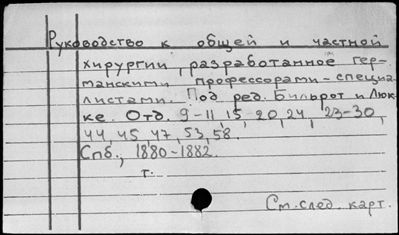 Руководство к общей и частной
хирургии, разработанное гер-
манскими профессорами-специа-
листами. Под ред. Бильрот и Люк-
ке. Отд. 9-11, 15, 20, 24, 23-30,
44, 45, 47, 53, 58.
Спб., 1880-1882.
г.
См. след. карт.